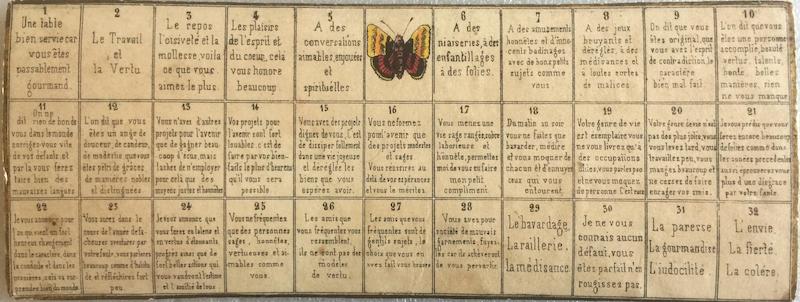 1
Une table
bien servie car
vous êtes
passablement
gourmand.
2
Le Travail
et
la Vertu
3
Le repos
l'oisiveté et la
mollesse, voila
ce que vous
aimez le plus.
4
Les plaisirs
de l'esprit et
du coeur, cela
vous honore
beaucoup
5
A des
conversations
aimables, enjouées
et
spirituelles
6
A des
niaiseries, à des
enfantillages
à des folies.
7
A des amusements
honnêtes et d'inno-
cents badinages
avec de bons petits
sujets comme
vous
8
A des jeux
bruyants et
déréglés, à des
médisances et
à toutes sortes
de malices
9
On dit que vous
êtes original, que
vous avez l'esprit
de contradiction, le
caractère
bien mal fait.
10
L'on dit que vous
êtes une personne
accomplie, beauté
vertus, talents,
bonté, belles
manières, rien
ne vous manque
11
On ne
dit rien de bon de
vous dans le monde
corrigez-vous vite
de vos défauts, et
par là vous ferez
taire bien des
mauvaises langues
12
L'on dit que vous
êtes un ange de
douceur, de candeur,
de modestie, que vous
êtes pétri de grâces
de manières nobles
et distinguées
13
Vous n'avez d'autres
projets pour l'avenir
que de gagner beau-
coup d'écus, mais
tachez de n'employer
pour cela que des
moyens justes et honnêtes
14
Vos projets pour
l'avenir sont fort
louables, c'est de
faire par vos bien-
faits le plus d'heureux
qu'il vous sera
possible
15
Vous avez des projets
dignes de vous, C'est
de dissiper follement
dans une vie joyeuse
et déréglée les
biens que vous
espérez avoir.
16
Vous ne formez
pour l'avenir que
des projets modestes
et sages
Vous réussirez au
delà de vos espérances
et vous le méritez.
17
Vous menez une
vie sage rangée, sobre
laborieuse et
honnête, permettez
moi de vous en faire
mon petit
compliment.
18
Du matin au soir
vous ne faites que
bavarder, médire
et vous moquer de
chacun et d'ennuyer
ceux qui vous
entourent.
19
Votre genre de vie
est exemplaire vous
ne vous livrez qu'à
des occupations
utiles, vous parlez peu
et ne vous moquez
de personne. C'est rare
20
Votre genre de vie n'est
pas des plus jolis, vous
vous levez tard, vous
travaillez peu, vous
mangez beaucoup et
ne cessez de faire
enrager vos amis.
21
Je vous prédis que vous
ferez encore beaucoup
de folies comme dans
les années précédentes
aussi éprouverez vous
plus d'une disgrace
par votre faute.
22
Je vous annonce pour
l'an qui vient un fort
heureux changement
dans le caractère, dans
la conduite et dans les
manières, cela va sur-
prendre bien du monde.
23
Vous aurez dans le
cours de l'année de fa-
cheuses aventures par
votre faute, vous parlerez
beaucoup comme d'habitude
et réfléchirez fort
peu.
24
Je vous annonce que
vous ferez en talens et
en vertus d'étonnants
progrès ainsi que de
fort belles actions qui
vous vaudront l'estime
et l'amitié de tous
25
Vous ne fréquentez
que des personnes
sages, honnêtes,
vertueuses et ai-
mables comme
vous.
26
Les amis que
vous fréquentez vous
ressemblent,
ils ne sont pas des
modèles de
vertu.
27
Les amis que vous
fréquentez sont de
gentils sujets, le
choix que vous en
avez fait vous honore
28
Vous avez pour
société de mauvais
garnements, fuyez-
les car ils achèveront
de vous pervertir.
29
Le bavardage.
La raillerie.
la médisance.
30
Je ne vous
connais aucun
défaut, vous
êtes parfait n'en
rougissez pas.
31
La paresse
La gourmandise
L'indocilité.
32
L'envie
La fierté
La colère.